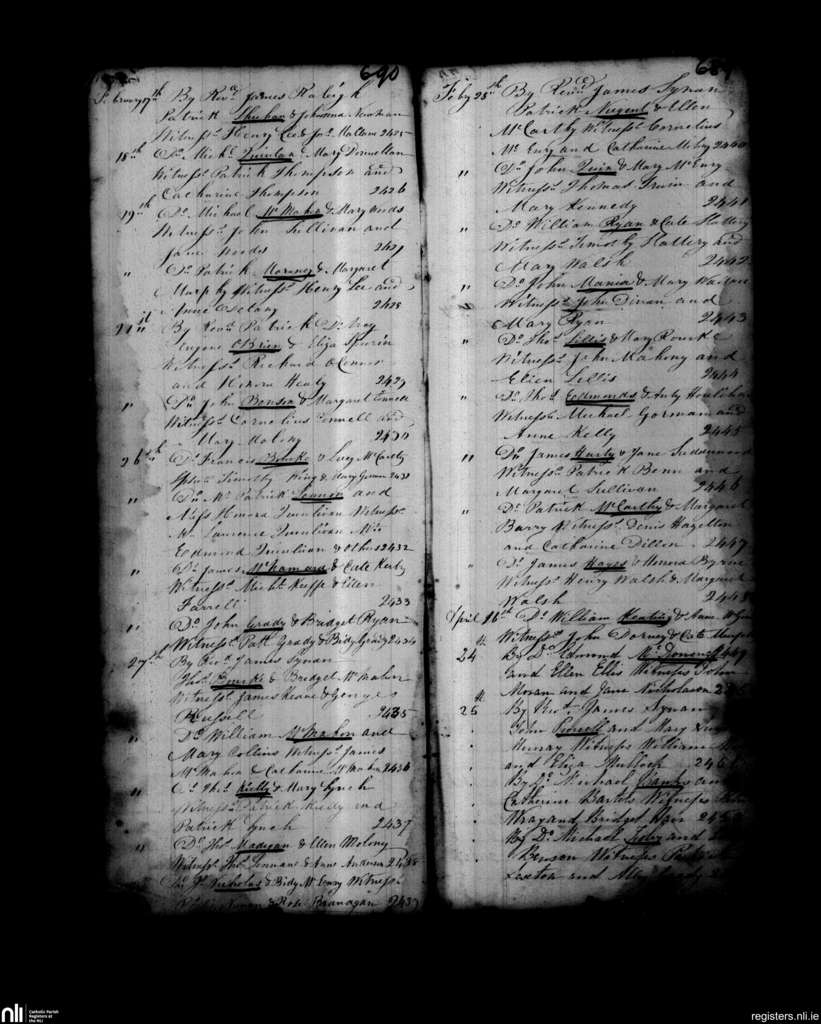 690
Febuary 17th By Revd James Raleigh
Patrick Sheehan & Johanna Newman
Witnesss Henry Lee & Jas Hallam 2425
18th Do Michl Quinlan & Mary Donnellan
Witnesss Patrick Thompson and
Catharine Thompson 2426
19th Do Michael McMahon & Mary Woods
Witnesss John Sullivan and
Jane Woods 2427
" Do Patrick Moroney & Margaret
Murphy Witnesss Henry Lee and
Anne Delany 2428
21st By Revd Patrick
Eugene OBrien & Eliza
Witnesss Richard OConnor
and Honora Healy 2429
" Do John & Margaret Connell
Witnesss Cornelius Connell and
Mary Molony 2430
26th Do Francis Bourke & Lucy McCarthy
Timothy King & Mary 2431
" Do Mr Patrick Lennon and
Miss Honora Quinlivan Witnesss
Mr Laurence Quinlivan Mrs
Edmond Quinlivan & Others 2432
" Do James McNamara & Cate Kerby
Witnesss Michl Keeffe & Ellen
Farrell 2433
" Do John Grady & Bridget Ryan
Witnesss Patk Grady & Bidy Grady 2434
27th By Revd James Synan
Thos Bourke & Bridget McMahon
Witnesss James Keane & George
Russell 2435
" Do William McMahon and
Mary Collins Witnesss James
McMahon & Catharine McMahon 2436
" Do Thos Kielly & Mary Lynch
Witnesss Patrick Kielly and
Patrick Lynch 2437
" Do Thos Madigan & Ellen Molony
Witnesss Thos Lennane & Anne Anderson 2438
Do Nicholas & Bidy McEnry Witnesss
& Rose Branagan 2439
Feby 28th By Revd James Synan
Patrick Nugent & Ellen
McCarthy Witnesss Cornelius
McEnry and Catharine 2440
" Do John Quin & Mary McEnry
Witnesss Thomas Irwin and
Mary Kennedy 2441
" Do William Ryan & Cate Slattery
Witnesss Timothy Slattery and
Mary Walsh 2442
" Do John & Mary Wallace
Witnesss John Dinan and
Mary Ryan 2443
" Do Thos Lillis & Mary Rourke
Witnesss John Mahony and
Ellen Lillis 2444
" Do Thos Edmonds & Anty Houlihan
Witnesss Michael Gorman and
Anne Kelly 2445
" Do James Hurly & Jane
Witnesss Patrick Benn and
Margaret Sullivan 2446
" Do Patrick McCarthy & Margaret
Barry Witnesss Denis Hazelton
and Catharine Dillon 2447
" Do James Hayes & Honora Byrne
Witnesss Henry Walsh & Margaret
Walsh 2448
April 16th Do William Keating & Anne
Witnesss John Dorney & Cate
24 By Do Edmond 2449
and Ellen Ellis Witness John
Moran and Jane Nicholason
25 By Revd James Synan
John Purcell and Mary
Murray Witness William
and Eliza
By Do Michael and
Catherine Bartels Witness John
Wray and Bridget Hair
By Do Michael and
Benson Witness
Sexton and
nli
Catholic Parish
Registers at
the NLI
registers.nli.ie